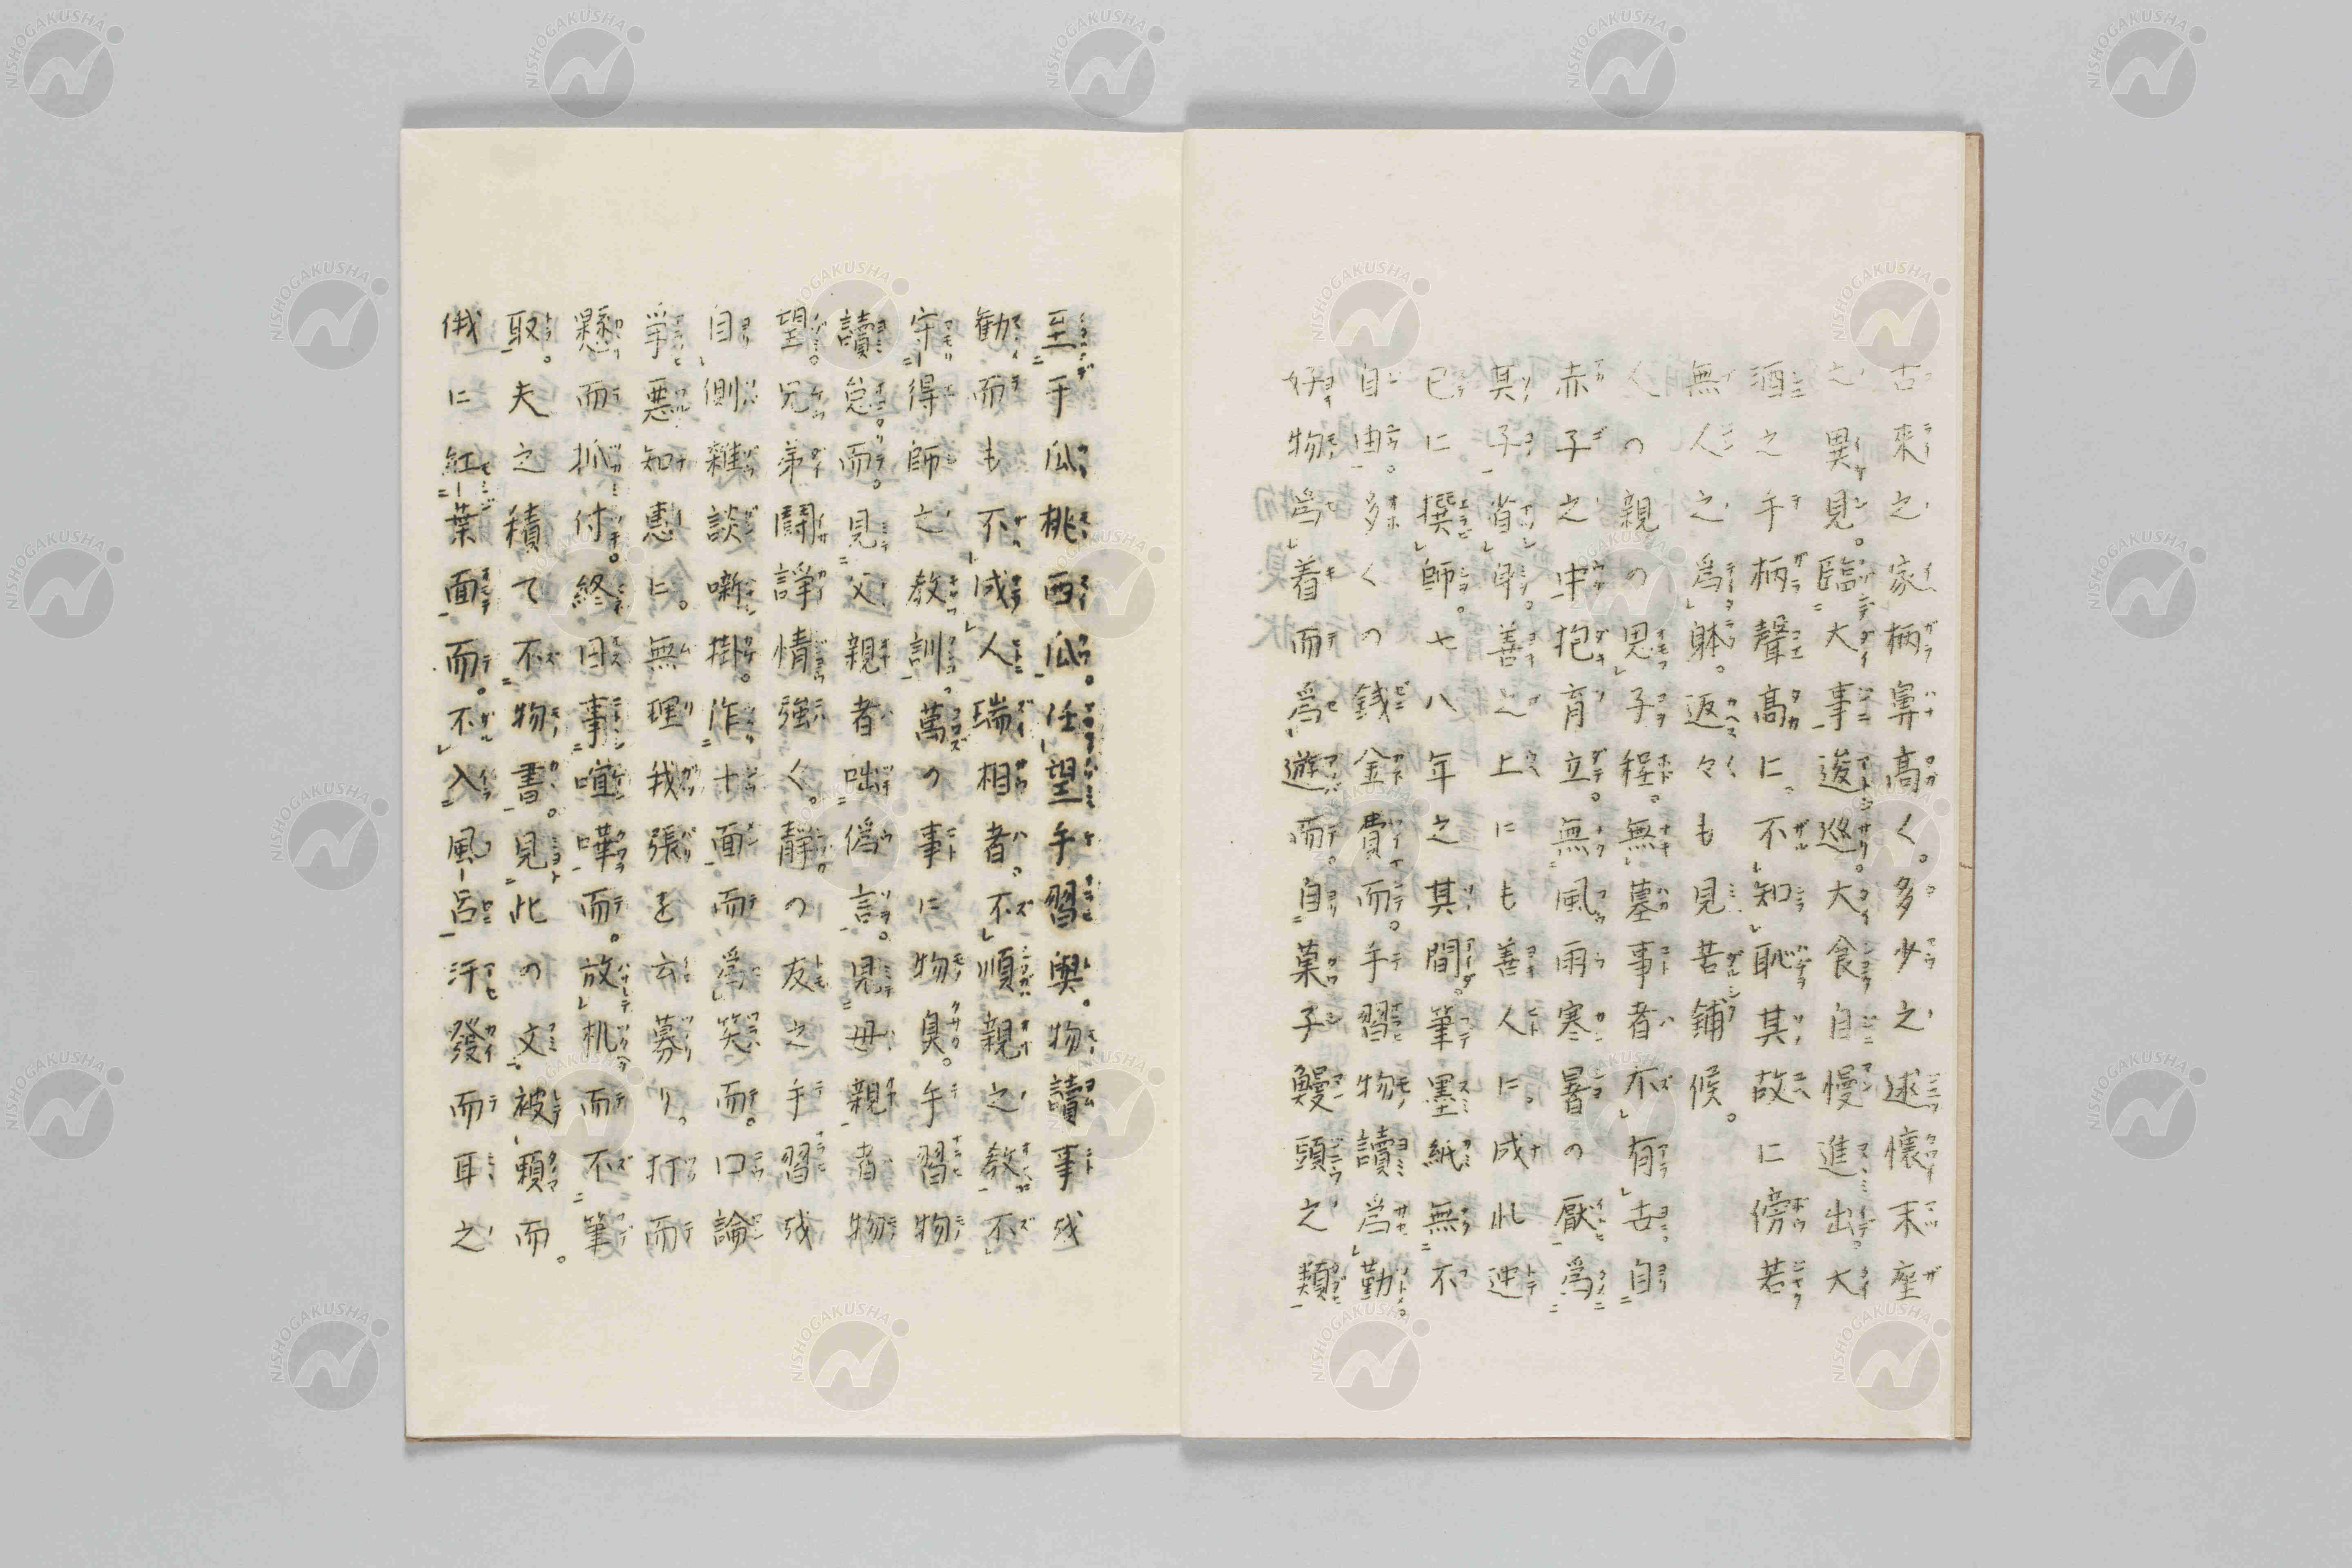 古来之家柄鼻高く。多少之述懐末座
之異見。臨大事逡巡。大食自慢進出。大
酒之手柄聲高に。不知恥其故に傍若
無人之為躰。返々も見苦鋪候。
人の親の思子程。無墓事者不有去。自
赤子之申抱育立。無風雨寒暑の厭為
其子省身。善之上にも善人に。成れ迚
已に撰師。七八年之其間。筆墨紙無不
自由。多くの銭金費而。手習物讀為勤
好物為着而為遊而。自菓子鰻頭之類
至于瓜桃西瓜。任望手習與。物讀事或
勧而も不成人瑞相者。不順親之教不
守得師之教訓。萬の事に物臭。手習物
讀怠而。見父親者咄偽言。見母親者物
望兄弟闘諍情強く。静の友之手習或
自側雑談噺掛。作十面而為笑而。口論
爭悪知恵に。無理我張を云募り。打而
懸而抓付。終日事喧嘩而。放机而不筆
取。夫之積て不物書。見此の文被頼而。
俄に紅葉面而。不入風呂汗發而耳之
NISHOGAKUSHA